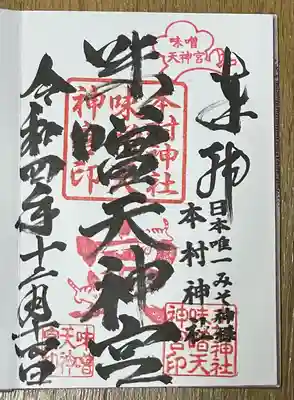 奉拝
味噌
天神宮
日本唯一みそ神様
本村神社
味噌天神宮
本村神社
味噌天
神宮印
令和四年十二月
本村神社
味噌天
神宮印
味噌
天神
宮印